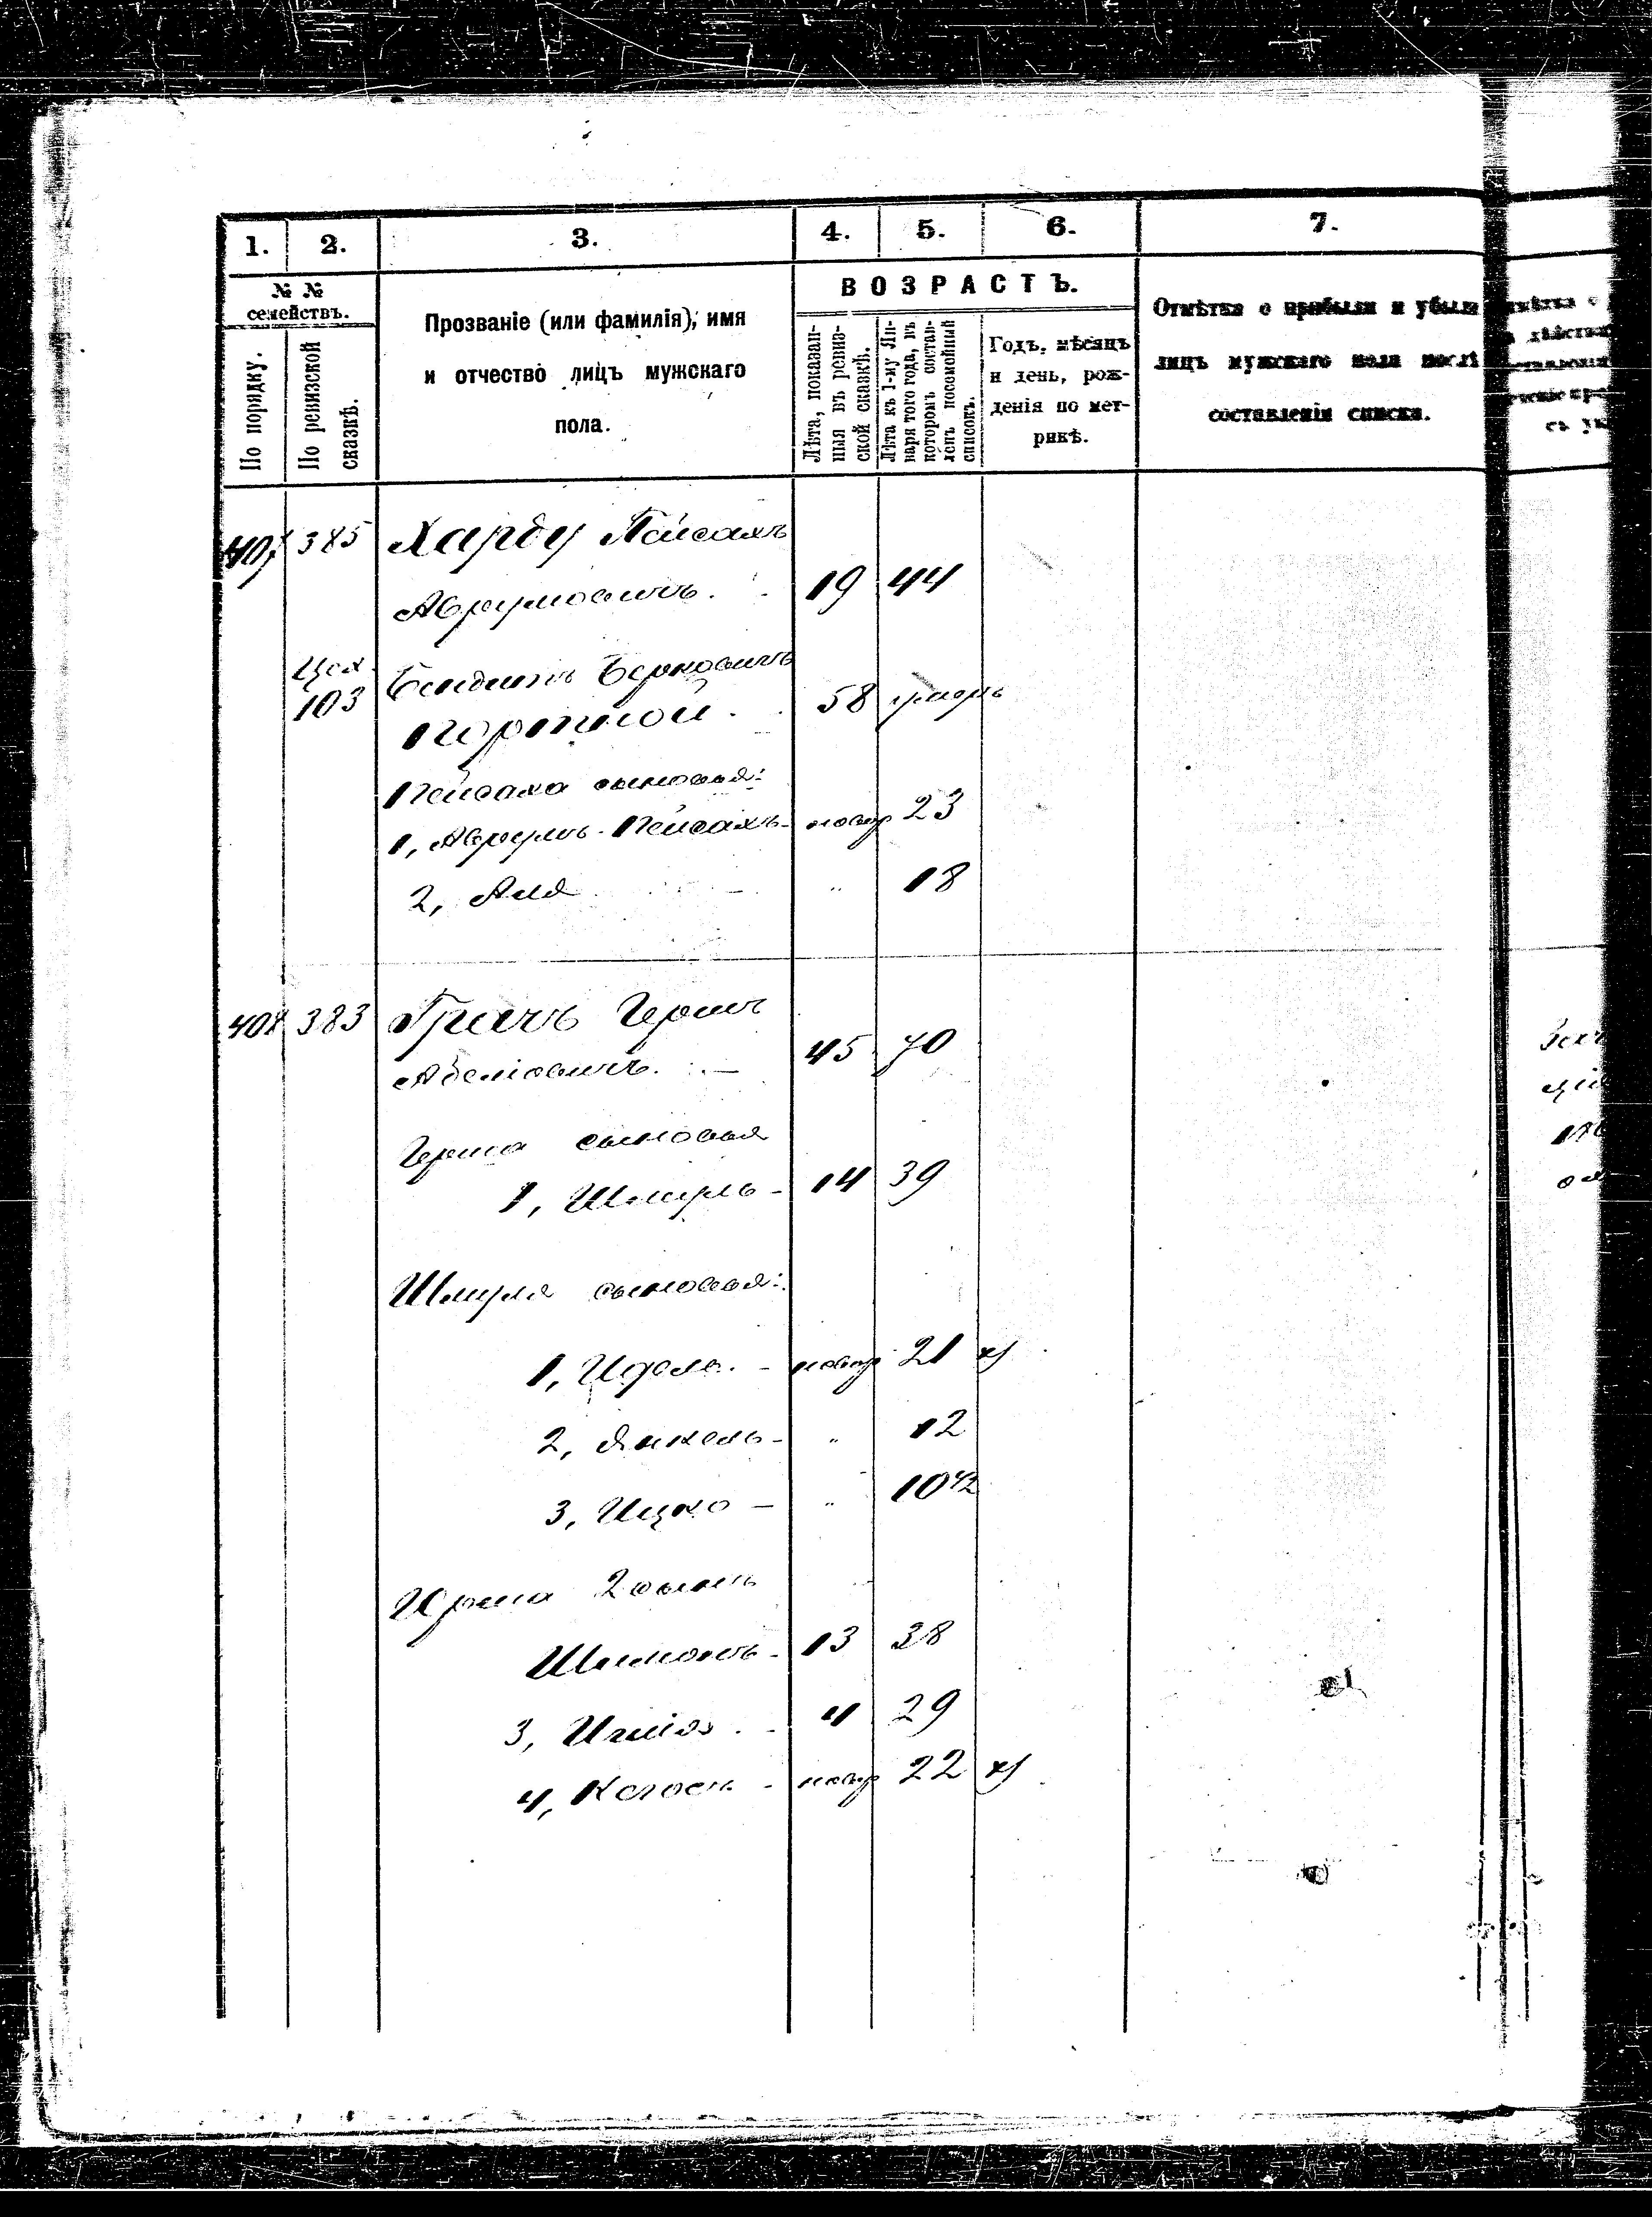 1. 2. 3. 4. 5. 6. 7.
№ №
семействъ.
По порядку.
По ревизской
сказкѣ.
Прозваніе (или фамилія), имя
и отчество лицъ мужскаго
пола.
ВОЗРАСТЪ.
Лѣта, показан-
ныя въ ревиз-
ской сказкѣ.
Лѣта къ 1-му Ян-
варя того года, въ
которомъ состав-
ленъ посемейный
списокъ.
Годъ, мѣсяцъ
и день, рож-
денія по мет-
рикѣ.
Отмѣтка о прибыли и убыли
лицъ мужскаго пола послѣ
составленія списка.
407 385 Харбу Пейсахъ
Аврумовичъ. 19 44
Цех. Бендитъ Берковичъ
103 Портной. 58 умеръ
Пейсаха сыновья:
1, Аврумъ-Пейсахъ - новор 23
2, Аля - " 18
408 383 Грачъ Герш
Абеліовичъ. - 45 70
Герша сыновья
1, Шмуль - 14 39
Шмуля сыновья:
1, Идель. - новор 21
2, Янкель - " 12
3, Ицко - " 10 1/2
2 сынъ
Шимонъ - 13 38
3, - 4 29
4, - новор 22